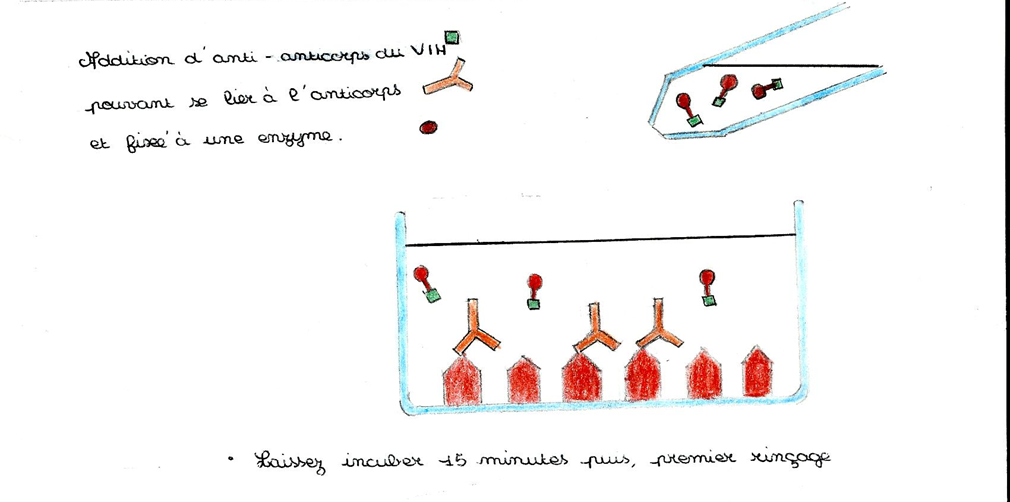 Addition d'anti-anticorps du VIH
pouvant se lier à l'anticorps
et fixé à une enzyme.
• Laissez incuber 15 minutes puis, premier rinçage